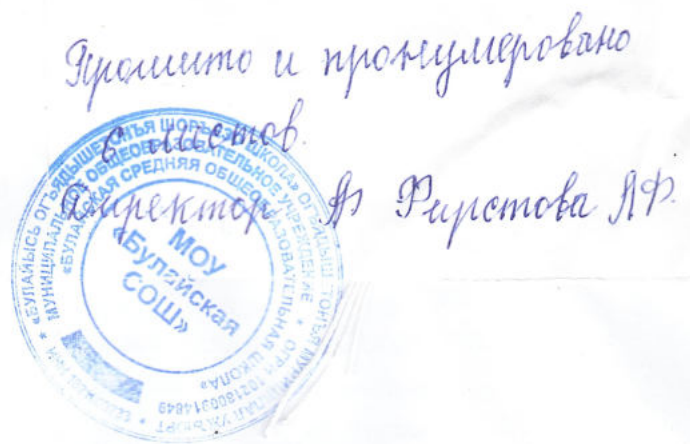 Прошито и пронумеровано
6 листов.
Директор Фирстова А.Ф.
МОУ
«Булайская
СОШ»
МУНИЦИПАЛЬНОЕ ОБЩЕОБРАЗОВАТЕЛЬНОЕ УЧРЕЖДЕНИЕ
«БУЛАЙСКАЯ СРЕДНЯЯ ОБЩЕОБРАЗОВАТЕЛЬНАЯ ШКОЛА»
* ОГРН 1021800914649